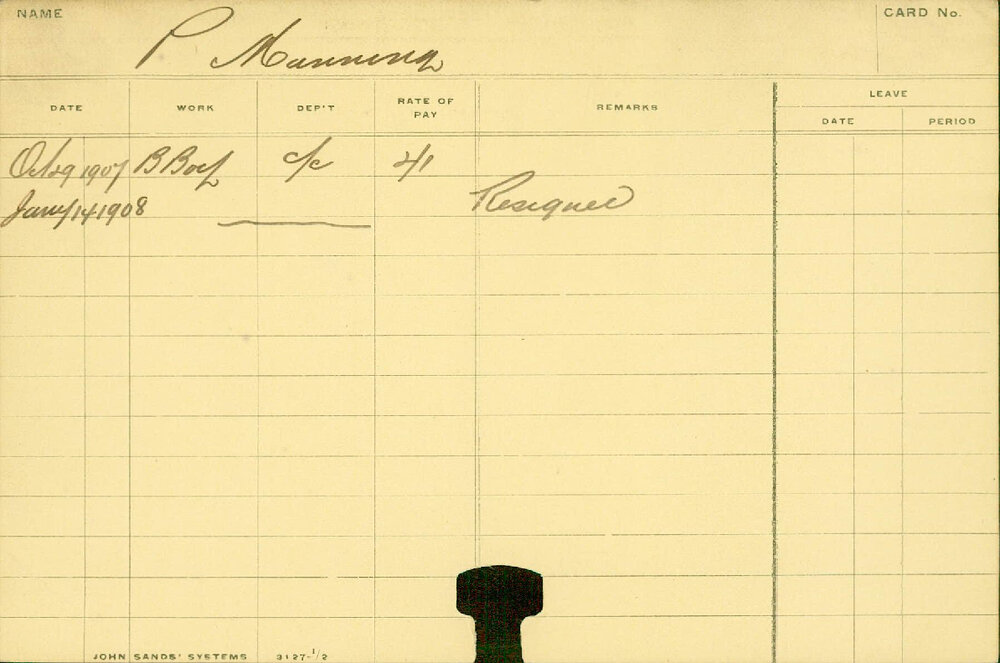 NAME P Manning CARD No.
DATE WORK DEP'T RATE OF PAY REMARKS LEAVE
DATE PERIOD
Oct 29 1907 B Boy c/c 4/1
Jany 14 1908 Resigned
JOHN SANDS' SYSTEMS 3127-1/2